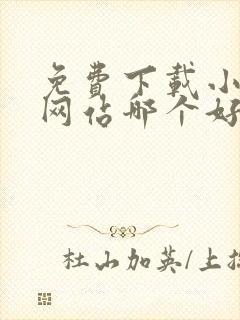 免费下载小
网站哪个好
杜山加英/上